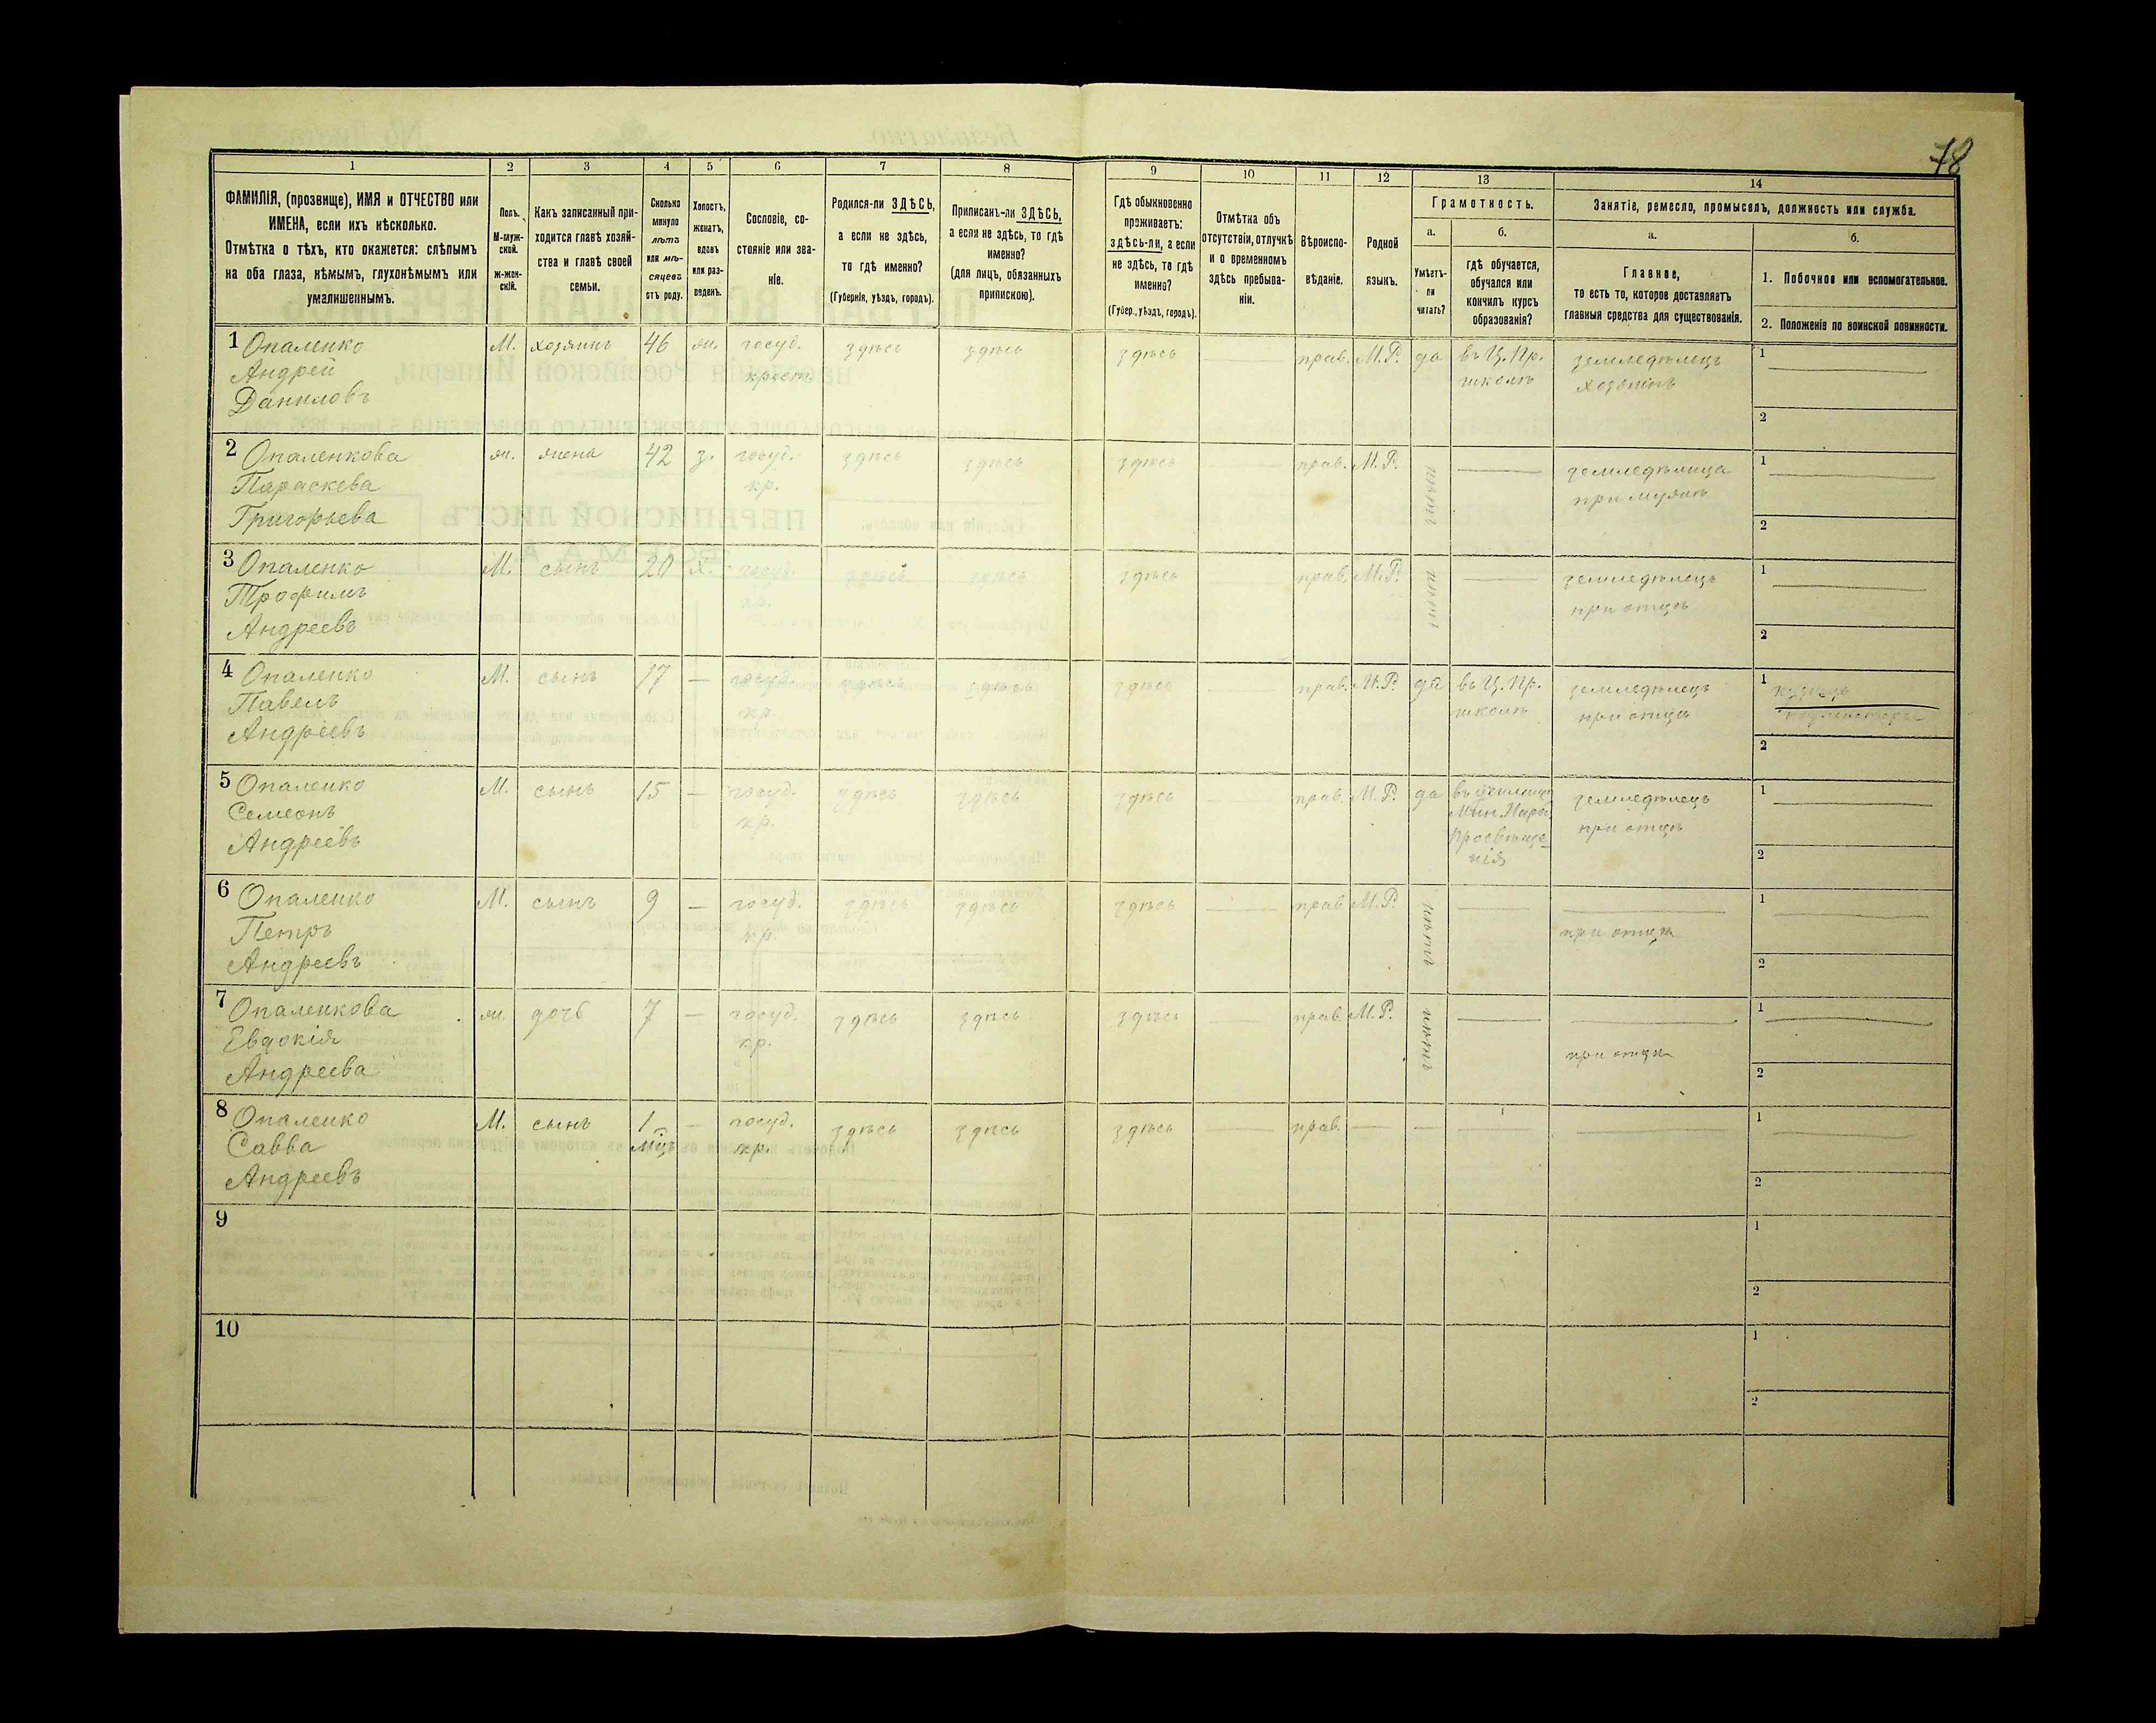 78
1
2
3
4
5
6
7
8
9
10
11
12
13
14
ФАМИЛІЯ, (прозвище), ИМЯ и ОТЧЕСТВО или
ИМЕНА, если ихъ нѣсколько.
Отмѣтка о тѣхъ, кто окажется: слѣпымъ
на оба глаза, нѣмымъ, глухонѣмымъ или
умалишеннымъ.
Полъ.
М-муж-
ской.
ж-жен-
скій.
Какъ записанный при-
ходится главѣ хозяй-
ства и главѣ своей
семьи.
Сколько
минуло
лѣтъ
или мѣ-
сяцевъ
отъ роду.
Холостъ,
женатъ,
вдовъ
или раз-
веденъ.
Сословіе, со-
стояніе или зва-
ніе.
Родился-ли ЗДѢСЬ,
а если не здѣсь,
то гдѣ именно?
(Губернія, уѣздъ, городъ).
Приписанъ-ли ЗДѢСЬ,
а если не здѣсь, то гдѣ
именно?
(для лицъ, обязанныхъ
припискою).
Гдѣ обыкновенно
проживаетъ:
здѣсь-ли, а если
не здѣсь, то гдѣ
именно?
(Губер., уѣздъ, городъ).
Отмѣтка объ
отсутствіи, отлучкѣ
и о временномъ
здѣсь пребыва-
ніи.
Вѣроиспо-
вѣданіе.
Родной
языкъ.
Грамотность.
а.
Умѣетъ-
ли
читать?
б.
гдѣ обучается,
обучался или
кончилъ курсъ
образованія?
Занятіе, ремесло, промыселъ, должность или служба.
а.
Главное,
то есть то, которое доставляетъ
главныя средства для существованія.
б.
1. Побочное или вспомогательное.
2. Положеніе по воинской повинности.
1 Опаленко М. хозяинъ 46 ж. госуд. здѣсь здѣсь здѣсь — прав. М.Р. да въ Ц. Пр. земледѣлецъ 1 —
Андрей крест. школѣ хозяинъ
Даниловъ 2
2 Опаленкова ж. жена 42 з. госуд. здѣсь здѣсь здѣсь — прав. М.Р. нѣтъ — земледѣлица 1 —
Параскева кр. при мужѣ
Григорьева 2
3 Опаленко М. сынъ 20 х. госуд. здѣсь здѣсь здѣсь — прав. М.Р. нѣтъ — земледѣлецъ 1 —
Трофимъ кр. при отцѣ
Андреевъ 2
4 Опаленко М. сынъ 17 — госуд. здѣсь здѣсь здѣсь — прав. М.Р. да въ Ц. Пр. земледѣлецъ 1
Павелъ кр. школѣ при отцѣ
Андреевъ 2
5 Опаленко М. сынъ 15 — госуд. здѣсь здѣсь здѣсь — прав. М.Р. да въ училищѣ земледѣлецъ 1 —
Семеонъ кр. Мин. Народ. при отцѣ
Андреевъ Просвѣще- 2
нія
6 Опаленко М. сынъ 9 — госуд. здѣсь здѣсь здѣсь — прав. М.Р. нѣтъ — — 1 —
Петръ кр. при отцѣ
Андреевъ 2
7 Опаленкова ж. дочь 7 — госуд. здѣсь здѣсь здѣсь — прав. М.Р. нѣтъ — — 1 —
Евдокія кр. при отцѣ
Андреева 2
8 Опаленко М. сынъ 1 — госуд. здѣсь здѣсь здѣсь — прав. — — — — 1 —
Савва мцъ кр.
Андреевъ 2
9 1
2
10 1
2